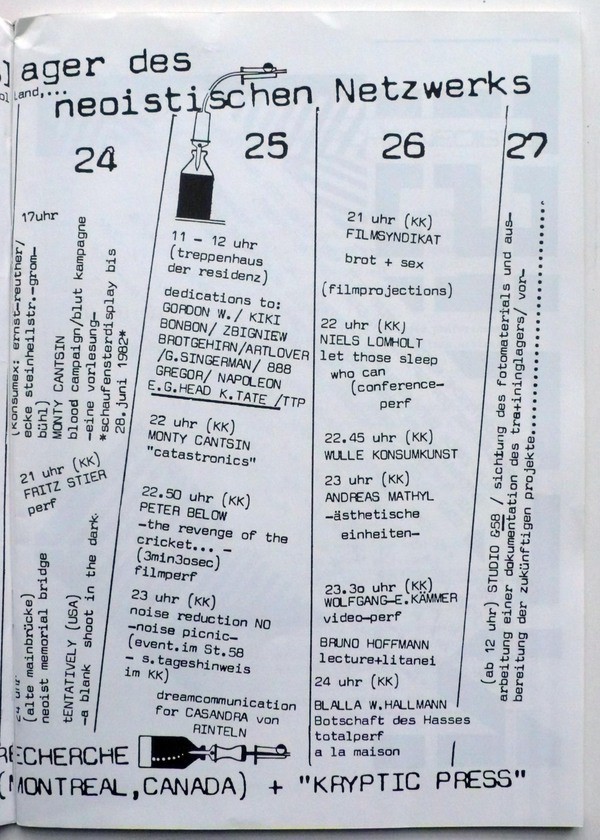 ager des
land,...
neoistischen Netzwerks
24
17uhr
(konsumex: ernst-reuther/
ecke steinheilstr.-grom-
bühl)
MONTY CANTSIN
blood campaign/blut kampagne
-eine vorlesung-
*schaufensterdisplay bis
28.juni 1982*
21 uhr (KK)
FRITZ STIER
perf
24 uhr
(alte mainbrücke)
neoist memorial bridge
tENTATIVELY (USA)
-a blank  shoot in the dark.
25
11 - 12 uhr
(treppenhaus
der residenz)
dedications to:
GORDON W./ KIKI
BONBON/ ZBIGNIEW
BROTGEHIRN/ARTLOVER
/G.SINGERMAN/ 888
GREGOR/ NAPOLEON
E.G.HEAD K.TATE /TTP
22 uhr (KK)
MONTY CANTSIN
"catastronics"
22.50 uhr (KK)
PETER BELOW
-the revenge of the
cricket... -
(3min3osec)
filmperf
23 uhr (KK)
noise reduction NO
-noise picnic-
(event.im St.58
- s.tageshinweis
im KK)
dreamcommunication
for CASANDRA von
RINTELN
26
21 uhr (KK)
FILMSYNDIKAT
brot + sex
(filmprojections)
22 uhr (KK)
NIELS LOMHOLT
let those sleep
who can
(conference-
perf
22.45 uhr (KK)
WULLE KONSUMKUNST
23 uhr (KK)
ANDREAS MATHYL
-ästhetische
einheiten-
23.3o uhr (KK)
WOLFGANG-E.KÄMMER
video-perf
BRUNO HOFFMANN
lecture+litanei
24 uhr (KK)
BLALLA W.HALLMANN
Botschaft des Hasses
totalperf
a la maison
27
(ab 12 uhr) STUDIO &58 / sichtung des fotomaterials und aus-
arbeitung einer dokumentation des tra+ininglagers, vor-
bereitung der zukünftigen projekte..............................
RECHERCHE
(MONTREAL,CANADA) + "KRYPTIC PRESS"